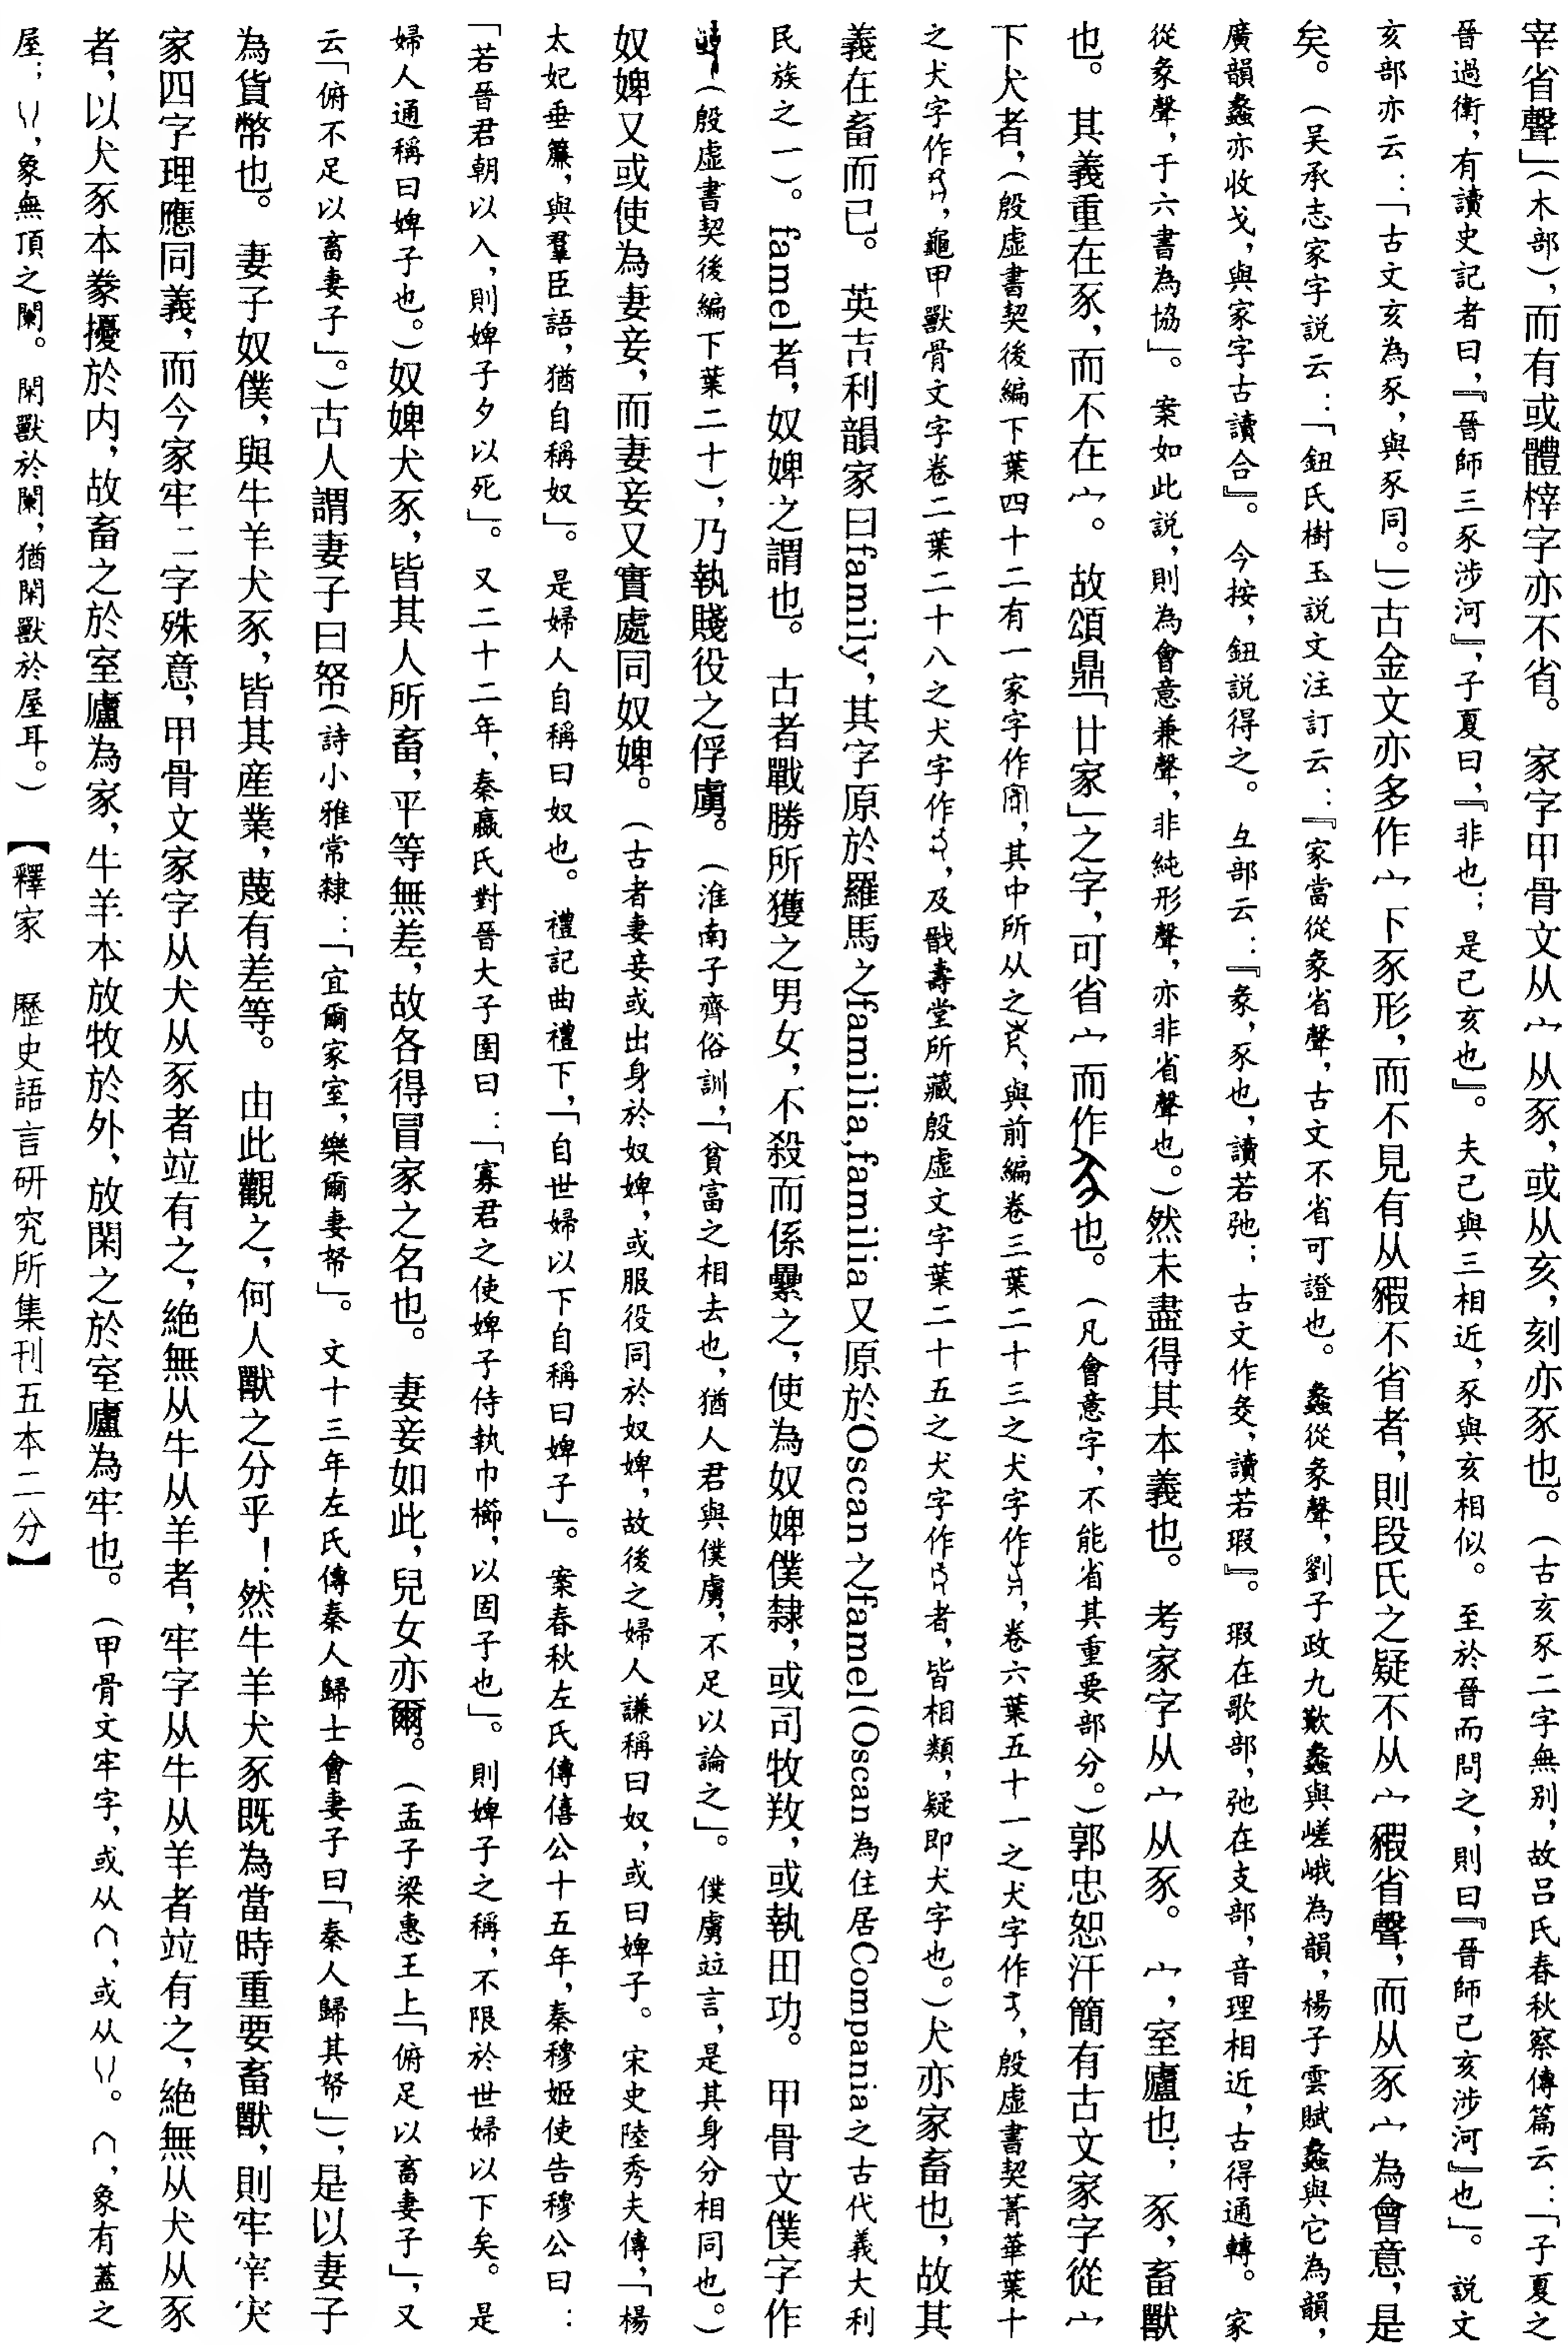 宰省聲」(木部)，而有或體梓字亦不省。　家字甲骨文从宀从豕，或从亥，刻亦豕也。(古亥豕二字無別，故吕氏春秋察傳篇云：「子夏之
晉過衛，有讀史記者曰，『晉師三豕涉河』，子夏曰，『非也；是己亥也』。夫己與三相近，豕與亥相似。至於晉而問之，則曰『晉師己亥涉河』也」。說文
亥部亦云：「古文亥為豕，與豕同。」)古金文亦多作宀下豕形，而不見有从豭不省者，則段氏之疑不从宀豭省聲，而从豕宀為會意，是
矣。(吴承志家字説云：「鈕氏樹玉説文注訂云：『家當從豙省聲，古文不省可證也。蠡從彖聲，劉子政九歎蠡與嵯峨為韻，楊子雲賦蠡與它為韻，
廣韻蠡亦收戈，與家字古讀合』。今按，鈕說得之。彑部云：『彖，豕也，讀若弛；古文作㣇，讀若瑕』。瑕在歌部，弛在支部，音理相近，古得通轉。家
從彖聲，于六書為協」。案如此説，則為會意兼聲，非純形聲，亦非省聲也。)然未盡得其本義也。考家字从宀从豕。宀，室廬也；豕，畜獸
也。其義重在豕，而不在宀。故頌鼎「廿家」之字，可省宀而作也。(凡會意字，不能省其重要部分。)郭忠恕汗簡有古文家字從宀
下犬者，(殷虚書契後編下葉四十二有一家字作，其中所从之，與前編卷三葉二十三之犬字作，卷六葉五十一之犬字作，殷虚書契菁華葉十
之犬字作，龜甲獸骨文字卷二葉二十八之犬字作，及戩壽堂所藏殷虚文字葉二十五之犬字作者，皆相類，疑即犬字也。)犬亦家畜也，故其
義在畜而已。英吉利韻家曰family，其字原於羅馬之familia，familia又原於Oscan之famel(Oscan為住居Compania之古代義大利
民族之一)。famel者，奴婢之謂也。古者戰勝所獲之男女，不殺而係纍之，使為奴婢僕隸，或司牧敹，或執田功。甲骨文僕字作
(殷虚書契後編下葉二十)，乃執賤役之俘虜。(淮南子齊俗訓，「貧富之相去也，猶人君與僕虜，不足以論之」。僕虜竝言，是其身分相同也。)
奴婢又或使為妻妾，而妻妾又實處同奴婢。(古者妻妾或出身於奴婢，或服役同於奴婢，故後之婦人謙稱曰奴，或曰婢子。宋史陸秀夫傳，「楊
太妃垂簾，與羣臣語，猶自稱奴」。是婦人自稱曰奴也。禮記曲禮下，「自世婦以下自稱曰婢子」。案春秋左氏傳僖公十五年，秦穆姬使告穆公曰：
「若晉君朝以入，則婢子夕以死」。又二十二年，秦嬴氏對晉大子圉曰：「寡君之使婢子侍執巾櫛，以固子也」。則婢子之稱，不限於世婦以下矣。是
婦人通稱曰婢子也。)奴婢犬豕，皆其人所畜，平等無差，故各得冒家之名也。妻妾如此，兒女亦爾。(孟子梁惠王上「俯足以畜妻子」，又
云「俯不足以畜妻子」。)古人謂妻子曰帑(詩小雅常棣：「宜爾家室，樂爾妻帑」。文十三年左氏傳秦人歸士會妻子曰「秦人歸其帑」)，是以妻子
為貨幣也。妻子奴僕，與牛羊犬豕，皆其産業，蔑有差等。由此觀之，何人獸之分乎！然牛羊犬豕既為當時重要畜獸，則牢宰宊
家四字理應同義，而今家牢二字殊意，甲骨文家字从犬从豕者竝有之，絶無从牛从羊者，牢字从牛从羊者竝有之，絶無从犬从豕
者，以犬豕本豢擾於内，故畜之於室廬為家，牛羊本放牧於外，放閑之於室廬為牢也。(甲骨文牢字，或从，或从。，象有蓋之
屋；，象無頂之闌。閑獸於闌，猶閑獸於屋耳。)　【釋家　歷史語言研究所集刊五本二分】